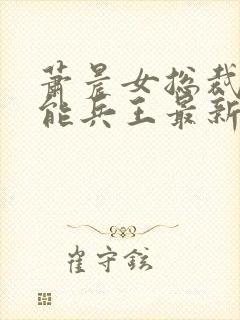 萧晨女总裁
能兵王最新
崔守铉